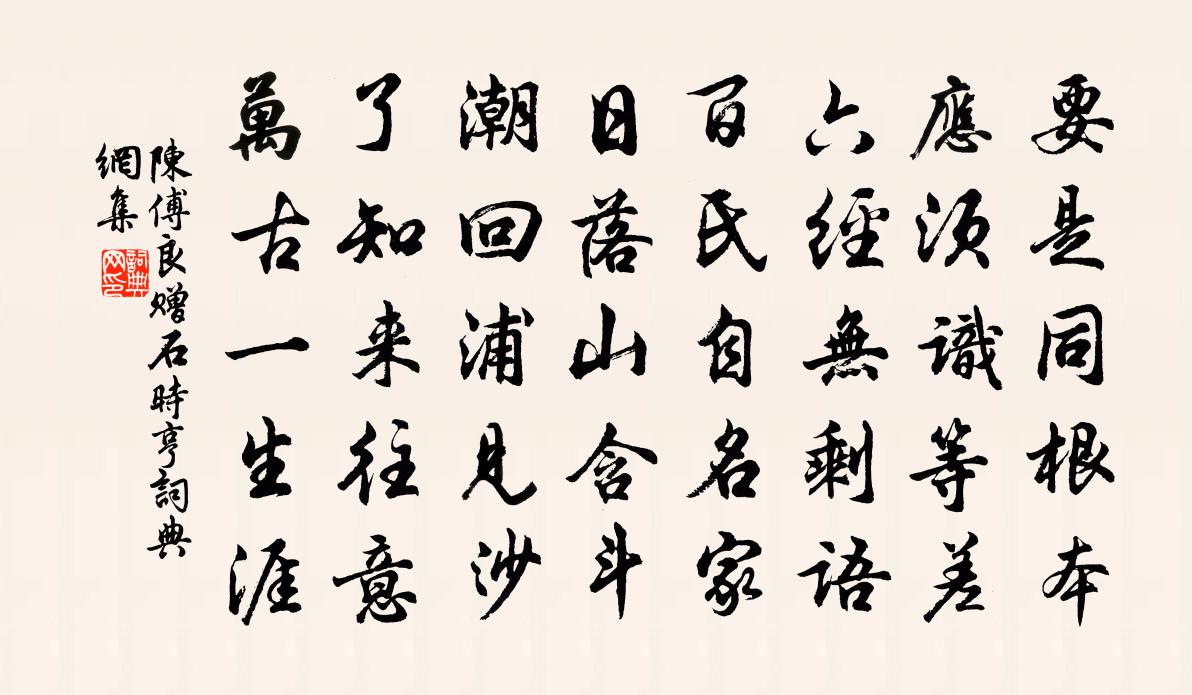 要是同根本
應須識等差
六經無剩語
百氏自名家
日落山含斗
潮回浦見沙
了知来往意
萬古一生涯
陳傅良赠石時亨詞典
網集
詞典网印